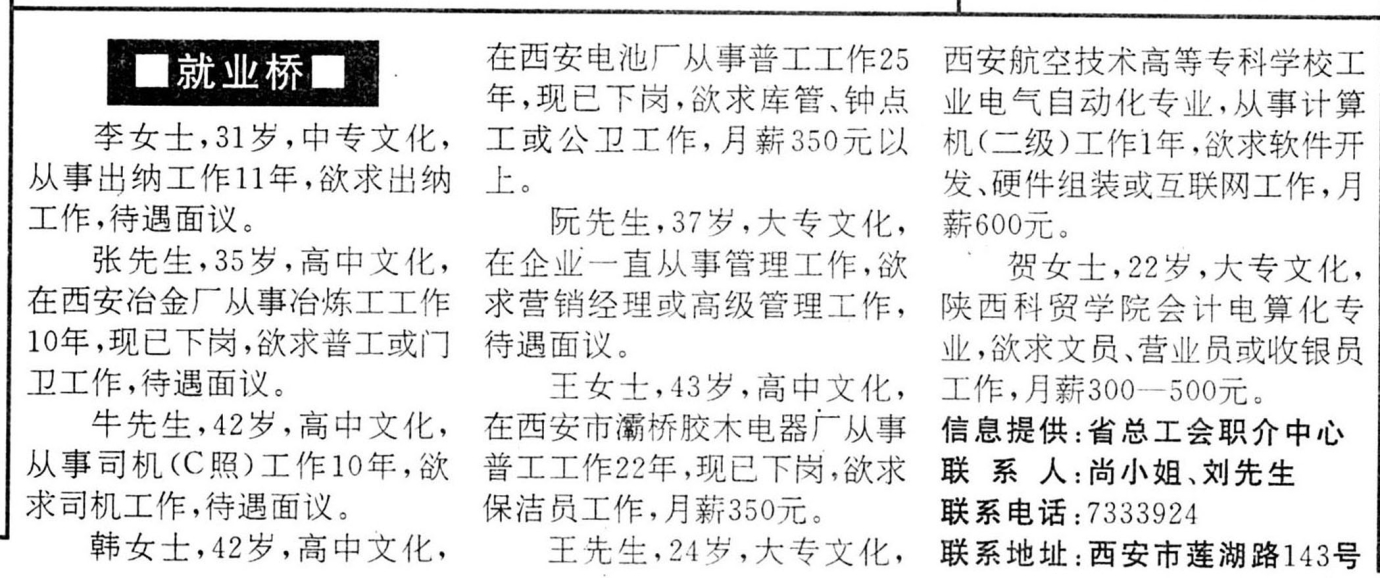 ■就业桥■
李女士,31岁,中专文化,
从事出纳工作11年,欲求出纳
工作,待遇面议。
张先生,35岁,高中文化,
在西安冶金厂从事冶炼工工作
10年,现已下岗,欲求普工或门
卫工作,待遇面议。
牛先生,42岁,高中文化,
从事司机(C照)工作10年,欲
求司机工作,待遇面议。
韩女士,42岁,高中文化,
在西安电池厂从事普工工作25
年,现已下岗,欲求库管、钟点
工或公卫工作,月薪350元以
上。
阮先生,37岁,大专文化,
在企业一直从事管理工作,欲
求营销经理或高级管理工作,
待遇面议。
王女士,43岁,高中文化,
在西安市灞桥胶木电器厂从事
普工工作22年,现已下岗,欲求
保洁员工作,月薪350元。
王先生,24岁,大专文化,
西安航空技术高等专科学校工
业电气自动化专业,从事计算
机(二级)工作1年,欲求软件开
发、硬件组装或互联网工作,月
薪600元。
贺女士,22岁,大专文化,
陕西科贸学院会计电算化专
业,欲求文员、营业员或收银员
工作,月薪300—500元。
信息提供:省总工会职介中心
联 系 人:尚小姐、刘先生
联系电话:7333924
联系地址:西安市莲湖路143号